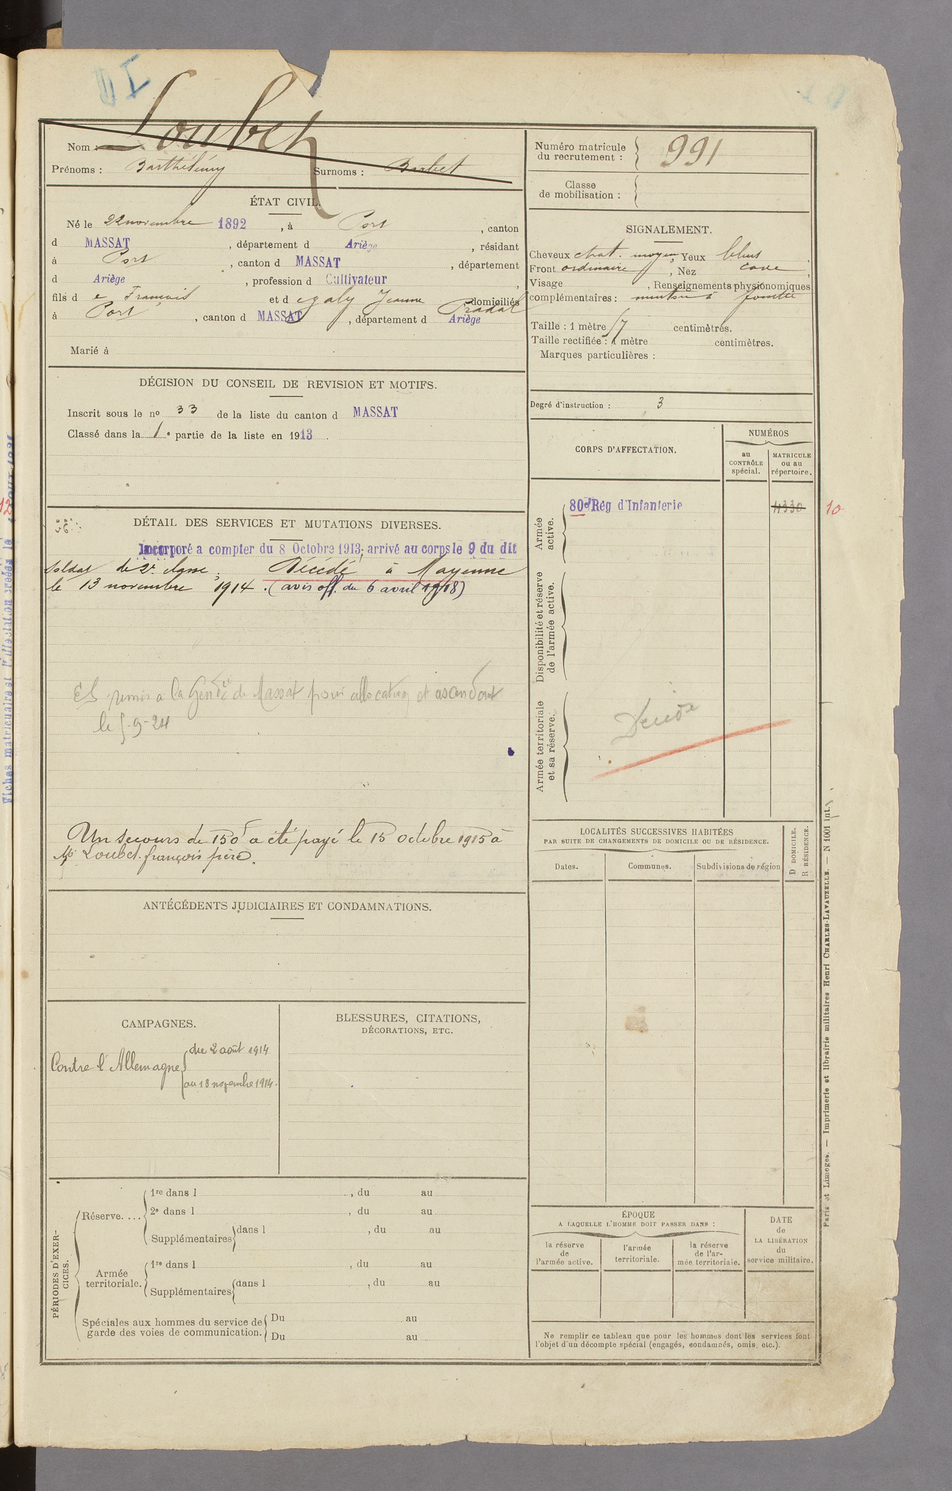 Loubet
Nom :
Prénoms : Barthélémy Surnoms : Barbet
ÉTAT CIVIL.
Né le 22 novembre 1892, à Port, canton
d MASSAT, département d Ariège, résidant
à Port, canton d MASSAT, département
d Ariège, profession d Cultivateur,
fils d e François et d egaly Jeanne domiciliés
à Port, canton d MASSAT, département d Ariège
Marié à
DÉCISION DU CONSEIL DE REVISION ET MOTIFS.
Inscrit sous le no 33 de la liste du canton d MASSAT
Classé dans la 1e partie de la liste en 1913.
DÉTAIL DES SERVICES ET MUTATIONS DIVERSES.
Incorporé a compter du 8 Octobre 1913, arrivé au corps le 9 du dit
soldat de 2e classe, Décédé à Mayenne
le 13 novembre 1914. (avis off. du 6 avril 1918)
ES remis à la Gendie de Massat pour allocation et ascendant
le 5-9-24
Un secours de 150f a été payé le 15 octobre 1915 à
Mr Loubet françois père.
ANTÉCÉDENTS JUDICIAIRES ET CONDAMNATIONS.
CAMPAGNES.
Contre l'Allemagne
du 2 août 1914
au 13 novembre 1914.
BLESSURES, CITATIONS,
DÉCORATIONS, ETC.
PÉRIODES D'EXERCICES.
Réserve....
1re dans l , du au
2e dans l , du au
Supplémentaires dans l , du au
Armée territoriale.
1re dans l , du au
Supplémentaires dans l , du au
Spéciales aux hommes du service de
garde des voies de communication.
Du au
Du au
Numéro matricule
du recrutement : 991
Classe
de mobilisation :
SIGNALEMENT.
Cheveux chat. moyen Yeux bleus
Front ordinaire, Nez cave,
Visage , Renseignements physionomiques
complémentaires : menton à fossette
Taille : 1 mètre 57 centimètres.
Taille rectifiée : 1 mètre centimètres.
Marques particulières :
Degré d'instruction : 3
CORPS D'AFFECTATION.
NUMÉROS
au
CONTRÔLE
spécial.
MATRICULE
ou au
répertoire.
Armée
active.
80e Rég d'Infanterie
4330
10
Disponibilité et réserve
de l'armée active.
Armée territoriale
et sa réserve.
LOCALITÉS SUCCESSIVES HABITÉES
PAR SUITE DE CHANGEMENTS DE DOMICILE OU DE RÉSIDENCE.
Dates.
Communes.
Subdivisions de région
D DOMICILE.
R RÉSIDENCE.
ÉPOQUE
A LAQUELLE L'HOMME DOIT PASSER DANS :
la réserve
de
l'armée active.
l'armée
territoriale.
la réserve
de l'ar-
mée territoriale.
DATE
de
LA LIBÉRATION
du
service militaire.
Ne remplir ce tableau que pour les hommes dont les services font
l'objet d'un décompte spécial (engagés, condamnés, omis, etc.).
Paris et Limoges. — Imprimerie et librairie militaires Henri CHARLES-LAVAUZELLE. — N 1001 int.